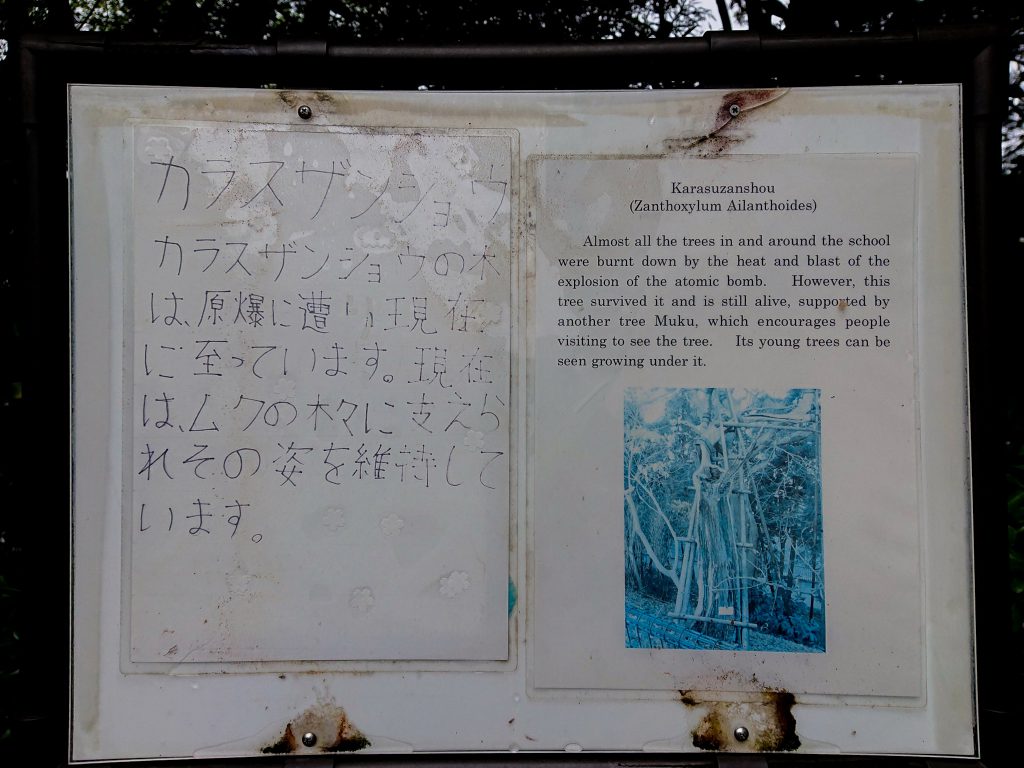 カラスザンショウ
カラスザンショウの木
は、原爆に遭い現在
に至っています。現在
は、ムクの木々に支えら
れその姿を維持して
います。
Karasuzanshou
(Zanthoxylum Ailanthoides)
Almost all the trees in and around the school
were burnt down by the heat and blast of the
explosion of the atomic bomb. However, this
tree survived it and is still alive, supported by
another tree Muku, which encourages people
visiting to see the tree. Its young trees can be
seen growing under it.